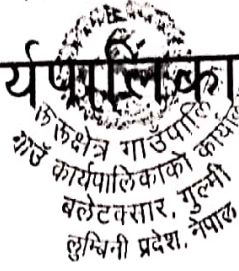 र्यपालिका
रुरुक्षेत्र गाउँपालि
गाउँ कार्यपालिकाको कार्याल
बलेटक्सार, गुल्मी
लुम्बिनी प्रदेश, नेपाल